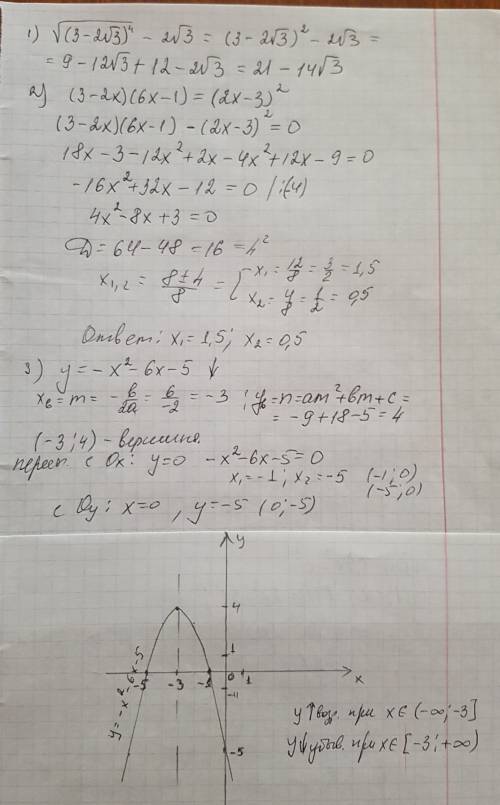 1) √(3-2√3)⁴ - 2√3 = (3-2√3)² - 2√3 =
= 9 - 12√3 + 12 - 2√3 = 21 - 14√3
2) (3-2x)(6x-1) = (2x-3)²
(3-2x)(6x-1) - (2x-3)² = 0
18x - 3 - 12x² + 2x - 4x² + 12x - 9 = 0
-16x² + 32x - 12 = 0 /:(-4)
4x² - 8x + 3 = 0
D = 64 - 48 = 16 = 4²
x₁,₂ = (8±4)/8 = { x₁ = 12/8 = 3/2 = 1,5
x₂ = 4/8 = 1/2 = 0,5
Ответ: x₁ = 1,5; x₂ = 0,5
3) y = -x² - 6x - 5 ↓
xв = m = -b/2a = 6/-2 = -3 ; yв = n = am² + bm + c =
= -9 + 18 - 5 = 4
(-3; 4) - вершина.
перес. с Ox: y=0 -x² - 6x - 5 = 0
x₁ = -1; x₂ = -5 (-1; 0)
(-5; 0)
с Oy: x=0, y=-5 (0; -5)
y
4
1
-5 -3 -1 0 1 x
-5
y = -x² - 6x - 5
y↑ возр. при x∈(-∞; -3]
y↓ убыв. при x∈[-3; +∞)